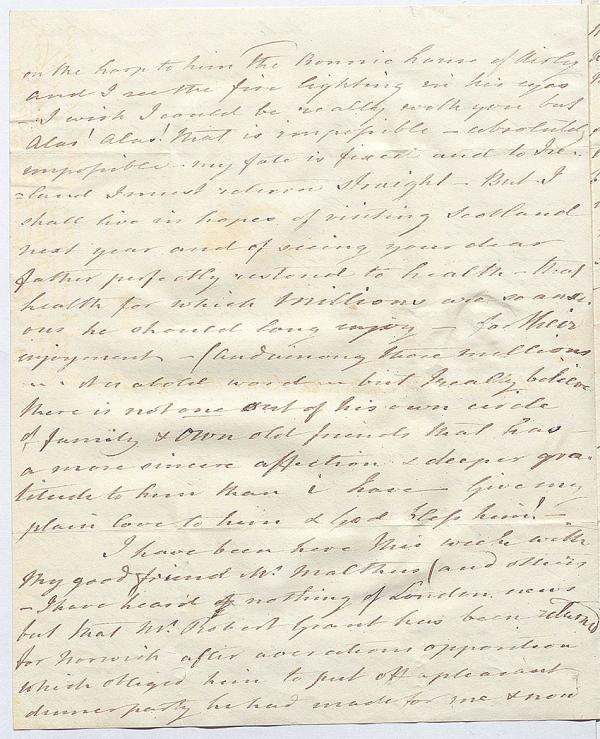 on the harp to him The Bonnie house of Airly
and I see the fire lighting in his eyes
– I wish I could be really with you but
Alas! Alas! that is impossible – absolutely
impossible – my fate is fixed and to Ire-
=land I must return straight – But I
shall live in hopes of visiting Scotland
next year and of seeing your dear
father perfectly restored to health – that
health for which Millions are so anxi-
ous he should long enjoy – for their
enjoyment – (and among those millions
is a bold word – but I really believe
there is not one out of his own circle
of family & own old friends that has
a more sincere affection & deeper gra-
titude to him than I have – Give my
plain love to him & God bless him! –
I have been here this week with
My good friend Mr. Malthus (and others
– I have heard of nothing of London news
but that Mr. Robert Grant has been returned
for Norwich after a vexatious opposition
which obliged him to put off a pleasant
dinner party he had made for me & now